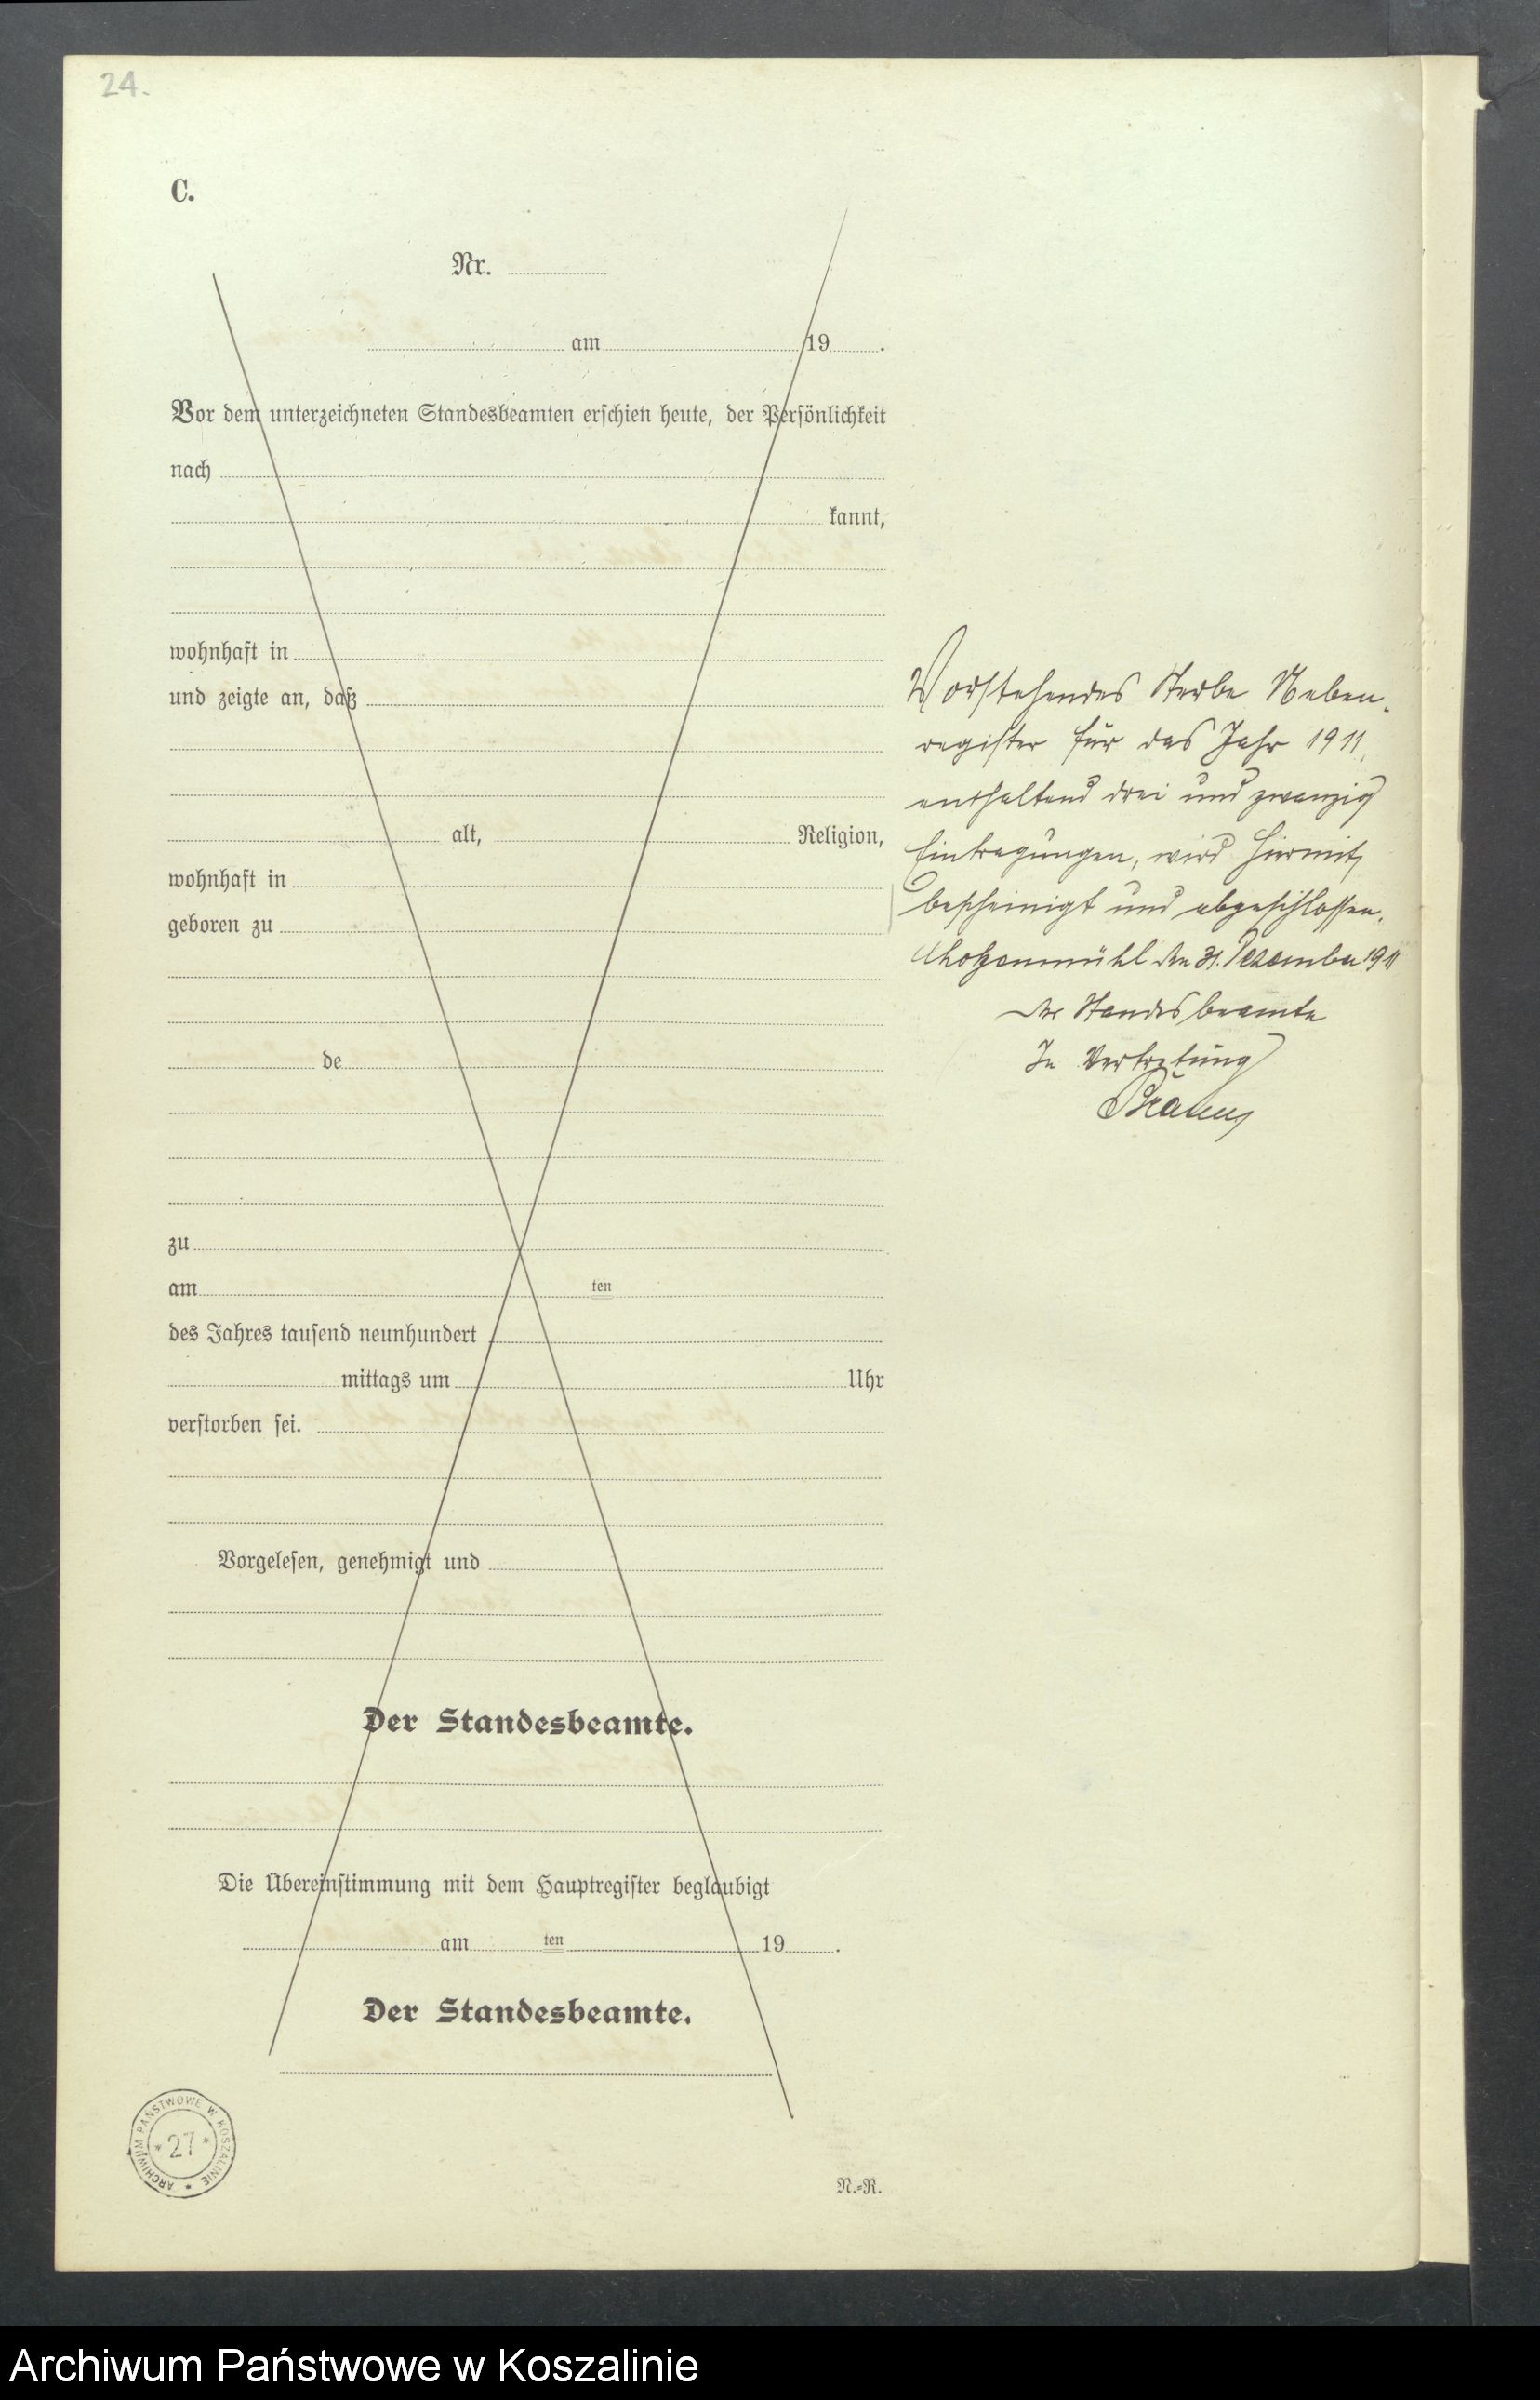 24.
C.
Nr.
am 19 .
Vor dem unterzeichneten Standesbeamten erschien heute, der Persönlichkeit
nach
kannt,
wohnhaft in
und zeigte an, daß
alt, Religion,
wohnhaft in
geboren zu
de
zu
am ten
des Jahres tausend neunhundert
mittags um Uhr
verstorben sei.
Vorgelesen, genehmigt und
Der Standesbeamte.
Die Übereinstimmung mit dem Hauptregister beglaubigt
am ten 19 .
Der Standesbeamte.
N.=R.
Vorstehendes Sterbe Neben-
register für das Jahr 1911,
enthaltend drei und zwanzig
Eintragungen, wird hiermit
bescheinigt und abgeschlossen.
den 31. Dezember 1911
Der Standesbeamte
In Vertretung
ARCHIWUM PAŃSTWOWE W KOSZALINIE
* 27 *
Archiwum Państwowe w Koszalinie